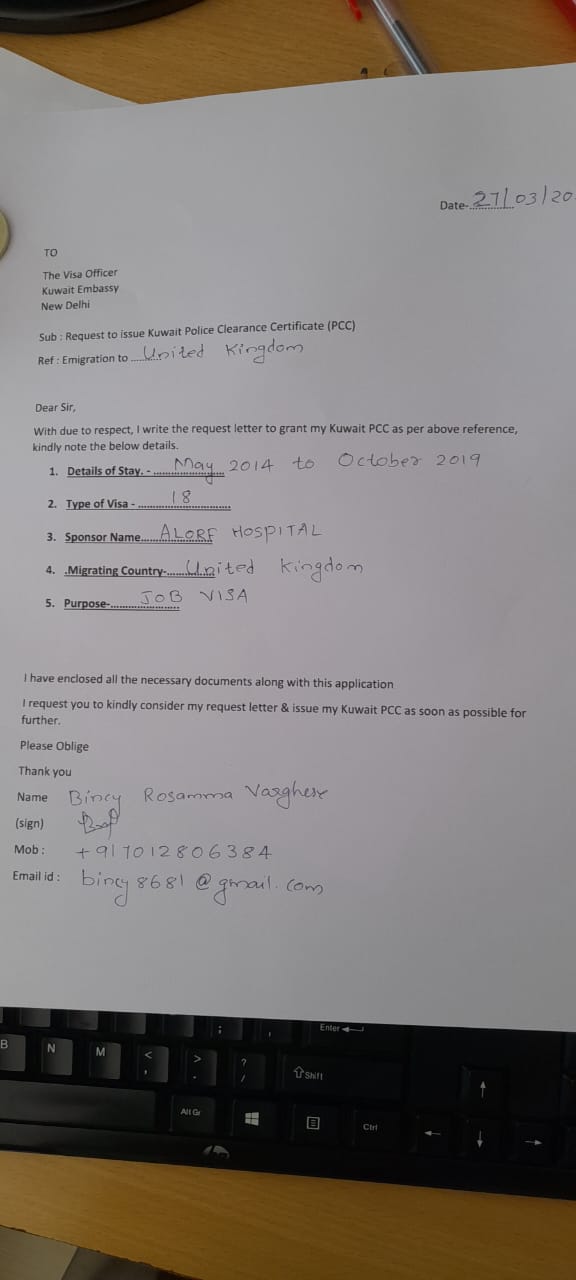 Date-..............27/03/20
TO
The Visa Officer
Kuwait Embassy
New Delhi
Sub : Request to issue Kuwait Police Clearance Certificate (PCC)
Ref : Emigration to ......United Kingdom
Dear Sir,
With due to respect, I write the request letter to grant my Kuwait PCC as per above reference,
kindly note the below details.
1. Details of Stay. - ......................May 2014 to October 2019
2. Type of Visa - .............................18
3. Sponsor Name......ALORF HOSPITAL
4. .Migrating Country-.......United Kingdom
5. Purpose-......................JOB VISA
I have enclosed all the necessary documents along with this application
I request you to kindly consider my request letter & issue my Kuwait PCC as soon as possible for
further.
Please Oblige
Thank you
Name Bincy Rosamma Varghese
(sign)
Mob : +917012806384
Email id : bincy8681@gmail.com
; , Enter
B N M < , > . ? / Shift
Alt Gr Ctrl
hp